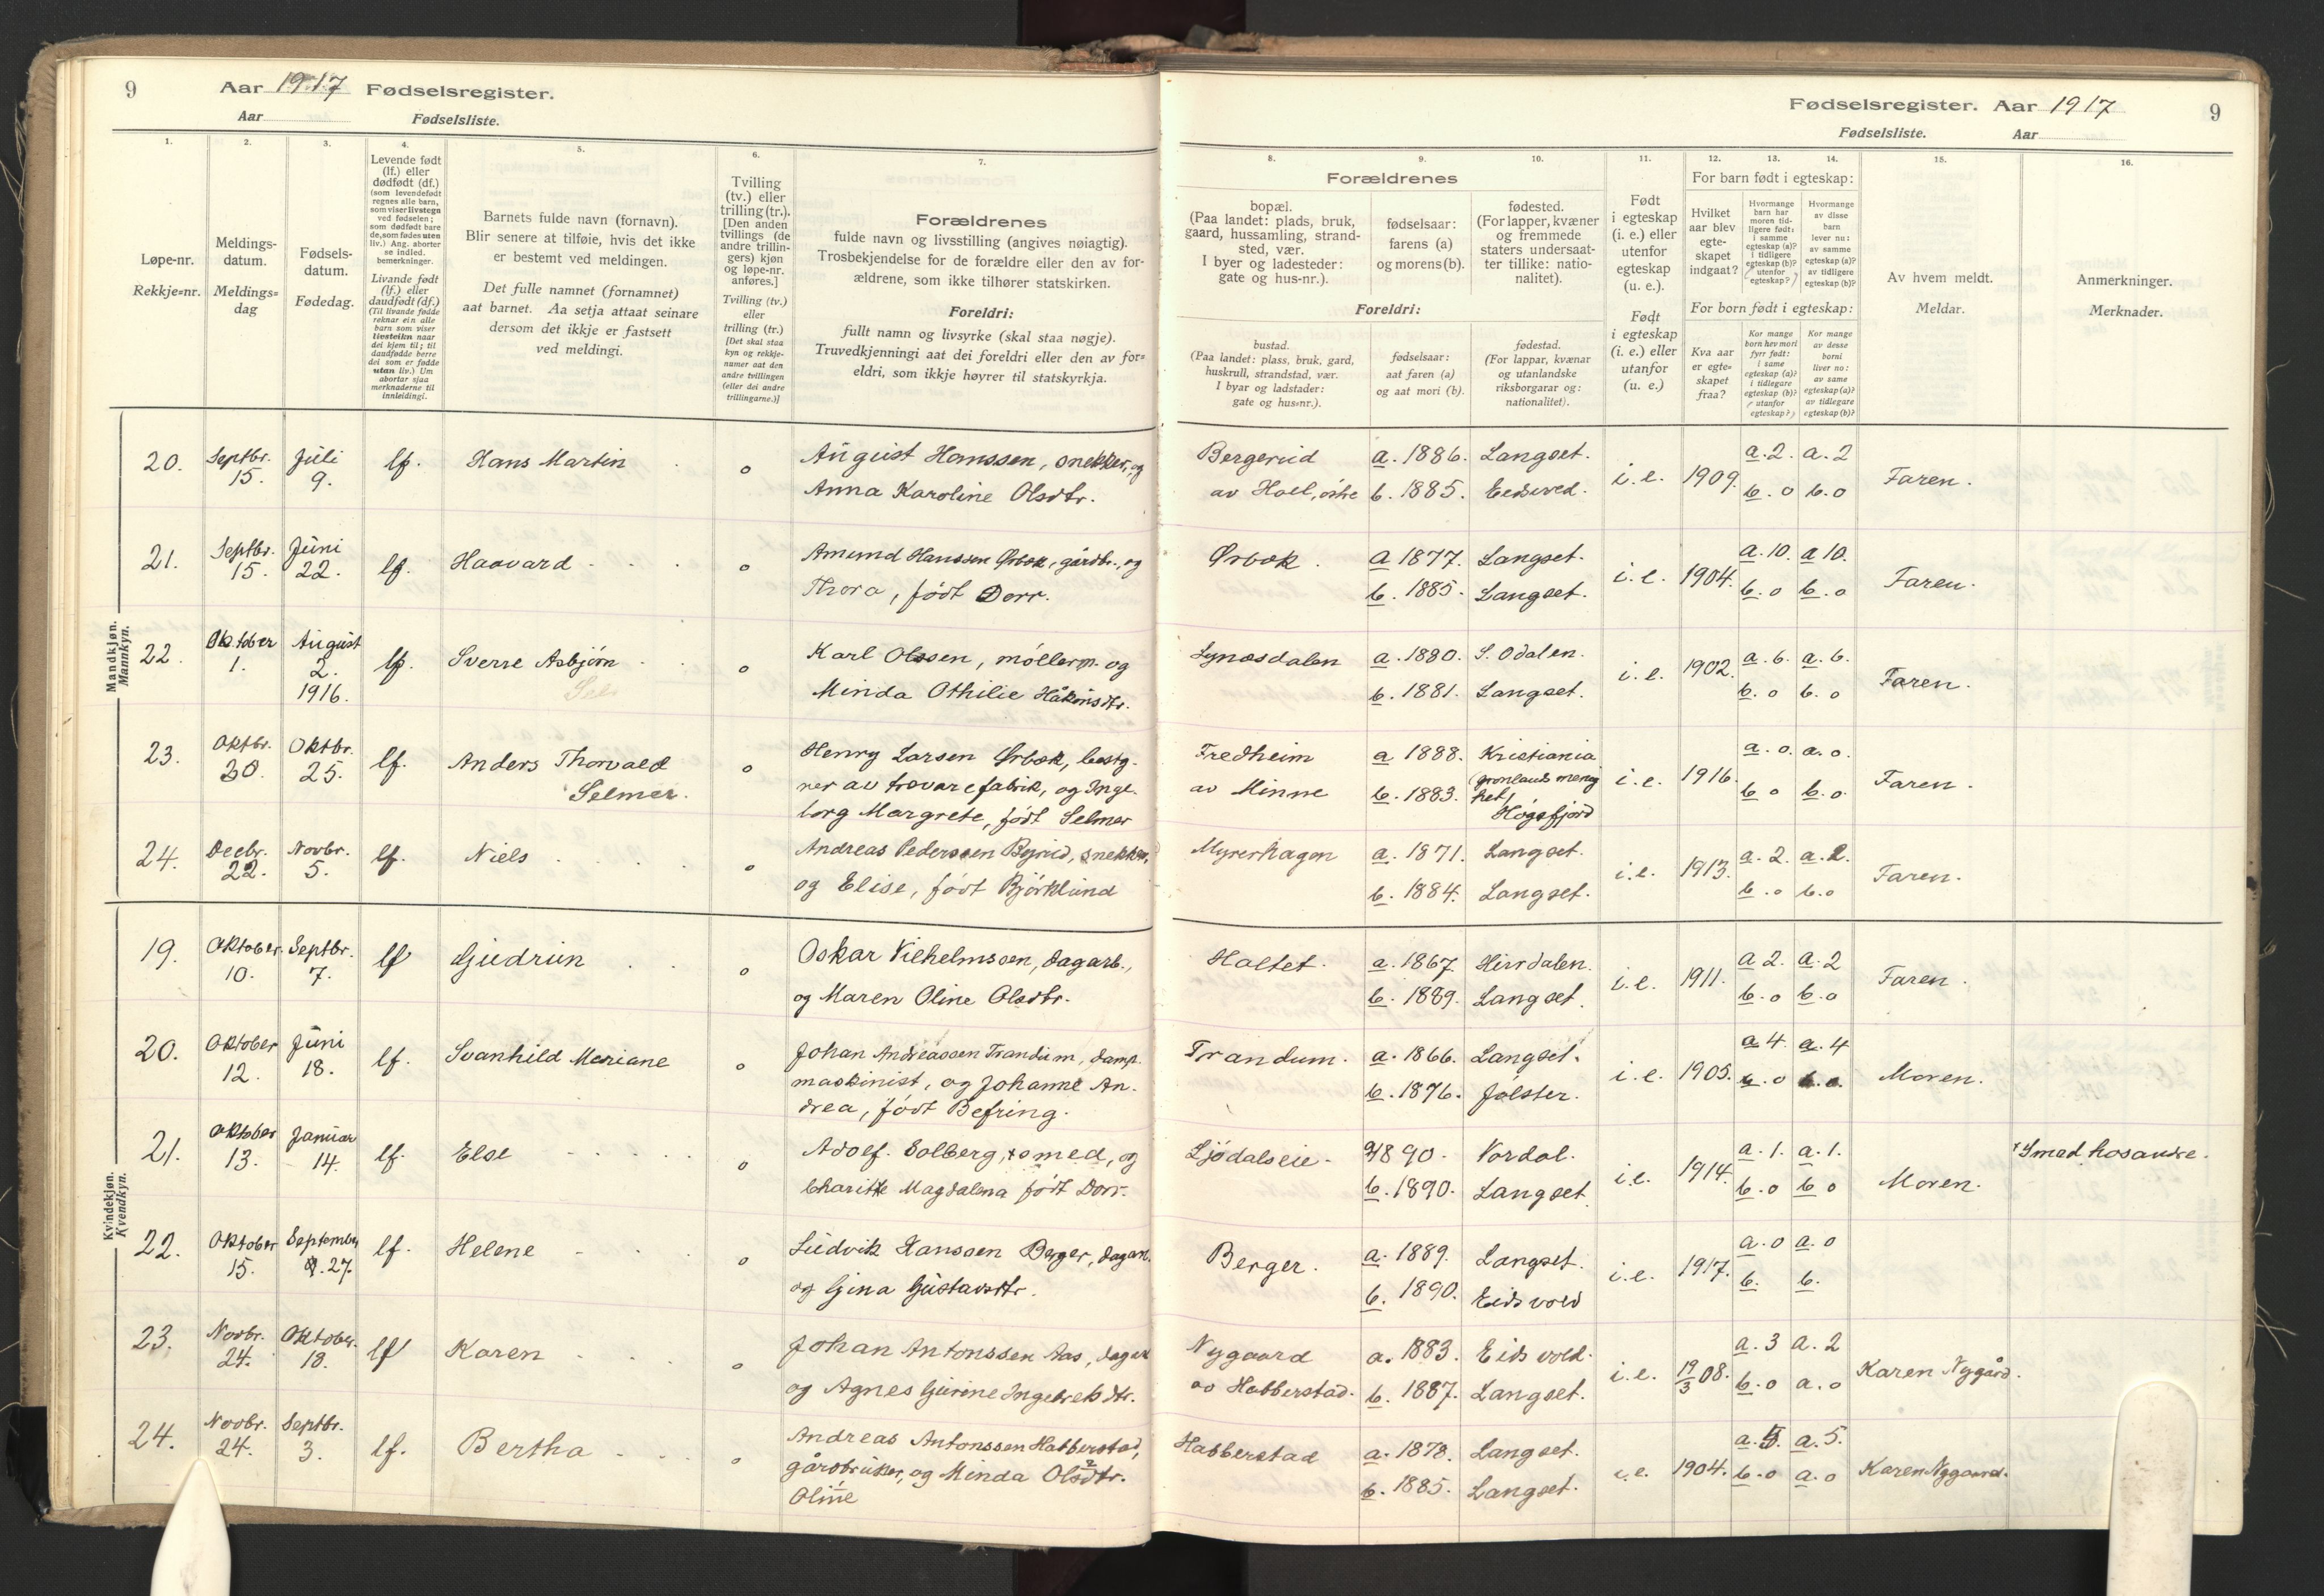 9 Aar 1917 Fødselsregister.
Aar Fødselsliste.
Fødselsregister. Aar 1917 9
Fødselsliste. Aar
1. 2. 3. 4. 5. 6. 7.
Løpe-nr.
Rekkje=nr.
Meldings-
datum.
Meldings=
dag
Fødsels-
datum.
Fødedag.
Levende født
(lf.) eller
dødfødt (df.)
(som levendefødt
regnes alle barn,
som viser livstegn
ved fødselen;
som dødfødt bare
de, som fødes uten
liv.) Ang. aborter
se indled.
bemerkninger.
Livande født
(lf.) eller
daudfødt (df.)
(Til livande fødde
reknar ein alle
barn som viser
livsteikn naar
dei kjem til; til
daudfødde berre
dei som er fødde
utan liv.) Um
abortar sjaa
merknaderne til
innleidingi.
Barnets fulde navn (fornavn).
Blir senere at tilføie, hvis det ikke
er bestemt ved meldingen.
Det fulle namnet (fornamnet)
aat barnet. Aa setja attaat seinare
dersom det ikkje er fastsett
ved meldingi.
Tvilling
(tv.) eller
trilling (tr.).
[Den anden
tvillings (de
andre trillin-
gers) kjøn
og løpe-nr.
anføres.]
Tvilling (tv.)
eller
trilling (tr.)
[Det skal staa
kyn og rekkje-
numer aat den
andre tvillingen
(eller dei andre
trillingarne.)]
Forældrenes
fulde navn og livsstilling (angives nøiagtig).
Trosbekjendelse for de forældre eller den av for-
ældrene, som ikke tilhører statskirken.
Foreldri:
fullt namn og livsyrke (skal staa nøgje).
Truvedkjenningi aat dei foreldri eller den av for=
eldri, som ikkje høyrer til statskyrkja.
8. 9. 10. 11. 12. 13. 14. 15. 16.
Forældrenes
bopæl.
(Paa landet: plads, bruk,
gaard, hussamling, strand-
sted, vær.
I byer og ladesteder:
gate og hus-nr.).
fødselsaar:
farens (a)
og morens (b).
fødested.
(For lapper, kvæner
og fremmede
staters undersaat-
ter tillike: natio-
nalitet).
Foreldri:
bustad.
(Paa landet: plass, bruk, gard,
huskrull, strandstad, vær.
I byar og ladstader:
gate og hus=nr.).
fødselsaar:
aat faren (a)
og aat mori (b).
fødestad.
(For lappar, kvænar
og utanlandske
riksborgarar og:
nationalitet).
Født
i egteskap
(i. e.) eller
utenfor
egteskap
(u. e.).
Født
i egteskap
(i. e.) eller
utanfor
(u. e.)
For barn født i egteskap:
Hvilket
aar blev
egte-
skapet
indgaat?
Hvormange
barn har
moren tid-
ligere født:
i samme
egteskap (a)?
i tidligere
egteskap (b)?
(utenfor
egteskap?)
Hvormange
av disse
barn
lever nu:
av samme
egteskap (a)?
av tidligere
egteskap (b)?
For born født i egteskap:
Kva aar
er egte=
skapet
fraa?
Kor mange
born hev mori
fyrr født:
i same
egteskap (a)?
i tidlegare
egteskap (b)?
(utanfor
egteskap?)
Kor mange
av desse
borni
liver no:
av same
egteskap (a)?
av tidlegare
egteskap (b)?
Av hvem meldt.
Meldar.
Anmerkninger.
Merknader.
Mandkjøn.
Mannkyn.
20. Septbr. 15. Juli 9. lf. Hans Martin o August Hanssen, snekker, og
Anna Karoline Olsdtr.
Bergerud
av Hoel, østre
a. 1886. Langset.
b. 1885. Eidsvold.
i. e. 1909. a. 2. a. 2
b. o b. o
Faren.
21. Septbr. 15. Juni 22. lf. Haavard o Amund Hanssen Ørbæk, gårdbr., og
Thora, født Dorr.
Ørbæk.
a 1877. Langset.
b. 1885. Langset.
i. e. 1904. a. 10. a 10.
b. o b. o
Faren.
22. Oktober 1. August 2. 1916. lf. Sverre Asbjørn o Karl Olssen, møllerm. og
Minda Othilie Håkonsdtr.
Lynæsdalen
a. 1880. S. Odalen.
b. 1881. Langset.
i. e. 1902. a. 6. a. 6.
b. o b. o
Faren.
23. Oktbr. 30. Oktbr. 25. lf. Anders Thorvald
Selmer. o Henry Larsen Ørbæk, bestg-
rer av trævarefabrik, og Inge-
borg Margrete, født Selmer
Fredheim
av Minne
a 1888. Kristiania
(Grønlands menig
het)
b. 1883. Høgsfjord
i. e. 1916. a. o. a. o.
b. o b. o.
Faren.
24. Decbr. 22. Novbr. 5. lf. Niels o Andreas Pederssen Bjrud, snekker,
og Elise, født Bjørklund
Myrerhagen
a. 1871. Langset.
b. 1884. Langset.
i. e. 1913. a. 2. a. 2.
b. o b. o
Faren.
Kvindekjøn.
Kvendkyn.
19. Oktober 10. Septbr. 7. lf Gudrun o Oskar Vilhelmssen, dagarb.,
og Maren Oline Olsdtr.
Holtet.
a. 1867. Hirrdalen.
b. 1889. Langset.
i. e. 1911. a 2. a. 2
b. o b. o
Faren.
20. Oktober 12. Juni 18. lf. Svanhild Mariane o Johan Andreassen Trandum, damp-
maskinist, og Johanne An-
drea, født Befring.
Trandum.
a. 1866. Langset.
b. 1876. Jølster.
i. e. 1905. a 4. a. 4
b. o b. o.
Moren.
21. Oktober 13. Januar 14. lf. Else o Adolf. Solberg, × smed, og
Charitte Magdalena født Dorr.
Ljødalseie.
a 1890. Nordal.
b. 1890. Langset.
i. e. 1914. a. 1. a. 1.
b. o b o
Moren.
× Smed hos andre.
22. Oktober 15. September 27. lf. Helene o Ludvik Hanssen Berger, dagarb.
og Gina Gustavsdtr.
Berger.
a. 1889. Langset.
b. 1890. Eidsvold
i. e. 1917. a. o a. o
b. b.
23. Novbr. 24. Oktober. 18. lf Karen o Johan Antonssen Aas, dagarb
og Agnes Gurine Ingebretsdtr.
Nygaard
av Habberstad.
a. 1883. Eidsvold.
b. 1887. Langset.
i. e. 19/3 08. a. 3 a. 2
b. o a. o
Karen Nygård.
24. Novbr. 24. Septbr. 3. lf. Bertha o Andreas Antonssen Habberstad,
gårdbruker, og Minda Olsdtr.
Oline
Habberstad
a. 1878. Langset.
b. 1885. Langset.
i. e. 1904. a. 5. a. 5.
b. o a. o
Karen Nygaard.